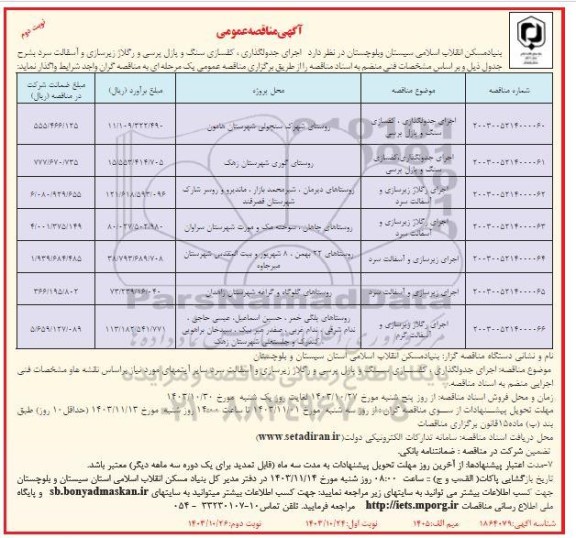 نوبت دوم
آگهی مناقصه عمومی
بنیادمسکن انقلاب اسلامی سیستان وبلوچستان در نظر دارد اجرای جدولگذاری ، کفسازی سنگ و پازل پرسی و رگلاژ زیرسازی و آسفالت سرد بشرح
جدول ذیل و بر اساس مشخصات فنی منضم به اسناد مناقصه را از طریق برگزاری مناقصه عمومی یک مرحله ای به مناقصه گران واجد شرایط واگذار نماید:
شماره مناقصه موضوع مناقصه محل پروژه مبلغ برآورد (ریال) مبلغ ضمانت شرکت در مناقصه (ریال)
۲۰۰۳۰۰۵۲۱۴۰۰۰۰۶۰ اجرای جدولگذاری ، کفسازی سنگ و پازل پرسی روستای شهرک سنجولی شهرستان هامون ۱۱/۱۰۹/۳۲۲/۴۹۰ ۵۵۵/۴۶۶/۱۲۵
۲۰۰۳۰۰۵۲۱۴۰۰۰۰۶۱ اجرای جدولگذاری،کفسازی سنگ و پازل پرسی روستای گوری شهرستان زهک ۱۵/۵۵۳/۴۱۴/۷۰۵ ۷۷۷/۶۷۰/۷۳۵
۲۰۰۳۰۰۵۲۱۴۰۰۰۰۶۲ اجرای رگلاژ زیرسازی و آسفالت سرد روستاهای دیرمان ، شیرمحمد بازار ، ماندیرو و روسر شارک شهرستان قصرقند ۱۲۱/۶۱۸/۵۹۳/۰۹۶ ۶/۰۸۰/۹۲۹/۶۵۵
۲۰۰۳۰۰۵۲۱۴۰۰۰۰۶۳ اجرای رگلاژ زیرسازی و آسفالت سرد روستاهای چاهان ، سوخته مک و مورت شهرستان سراوان ۴/۰۰۱/۳۷۵/۱۴۹
۲۰۰۳۰۰۵۲۱۴۰۰۰۰۶۴ اجرای زیرسازی و آسفالت سرد روستاهای ۲۲ بهمن ، ۸ شهریور و بیت المقدس شهرستان میرجاوه ۳۸/۷۹۳/۶۸۹/۷۰۸ ۱/۹۳۹/۶۸۴/۴۸۵
۲۰۰۳۰۰۵۲۱۴۰۰۰۰۶۵ اجرای زیرسازی و آسفالت سرد روستاهای گلوگاه و گراغه شهرستان زاهدان ۳۶۶/۱۹۵/۸۰۲
۲۰۰۳۰۰۵۲۱۴۰۰۰۰۶۶ اجرای رگلاژ زیرسازی و آسفالت گرم روستاهای یلگی خمر ، حسین اسماعیل، عیسی خالق ، ندام شرقی ، ندام غربی ، صفدر میر بیک ، سیدخان براهویی ، گمرک و جلستغلی شهرستان زهک ۱۱۳/۱۸۲/۵۴۱/۷۷۱ ۵/۶۵۹/۱۲۷/۰۸۹
نام و نشانی دستگاه مناقصه گزار: بنیادمسکن انقلاب اسلامی استان سیستان و بلوچستان
موضوع مناقصه: اجرای جدولگذاری ، کفسازی سنگ و پازل پرسی و رگلاژ زیرسازی و آسفالت سرد و سایر آیتمهای مورد نیاز براساس نقشه ها و مشخصات فنی
اجرایی منضم به اسناد مناقصه.
زمان و محل فروش اسناد مناقصه: از روز پنج شنبه مورخ ۱۴۰۳/۱۰/۲۷ لغایت روز یک شنبه مورخ ۱۴۰۳/۱۰/۳۰
مهلت تحویل پیشنهادات از سوی مناقصه گران: از روز سه شنبه مورخ ۱۴۰۳/۱۱/۰۱ تا ساعت ۱۴:۰۰ روز شنبه مورخ ۱۴۰۳/۱۱/۱۳ (حداقل ۱۰ روز) طبق
بند (پ) ماده۱۵قانون برگزاری مناقصات
محل دریافت اسناد مناقصه: سامانه تدارکات الکترونیکی دولت(www.setadiran.ir)
تضمین شرکت در مناقصه : ضمانتنامه بانکی.
۷-مدت اعتبار پیشنهادها: از آخرین روز مهلت تحویل پیشنهادات به مدت سه ماه (قابل تمدید برای یک دوره سه ماهه دیگر) معتبر باشد.
تاریخ بازگشایی پاکات( الف،ب و ج) :: ساعت ۰۸:۰۰ روز شنبه مورخ ۱۴۰۳/۱۱/۱۴ در دفتر مدیر کل بنیاد مسکن انقلاب اسلامی استان سیستان و بلوچستان
جهت کسب اطلاعات بیشتر می توانید به سایتهای زیر مراجعه نمایید: جهت کسب اطلاعات بیشتر میتوانید به سایتهای sb.bonyadmaskan.ir و پایگاه
ملی اطلاع رسانی مناقصات http://iets.mporg.ir مراجعه فرمایید. تلفن تماس:۱۰-۳۳۲۳۰۱۰۷ - ۰۵۴
شناسه آگهی:۱۸۶۴۰۷۹ میم الف:۱۴۰۵ نوبت اول:۱۴۰۳/۱۰/۲۴ نوبت دوم:۱۴۰۳/۱۰/۲۶
ParsNamadData
پایگاه اطلاع رسانی مناقصه و مزایده